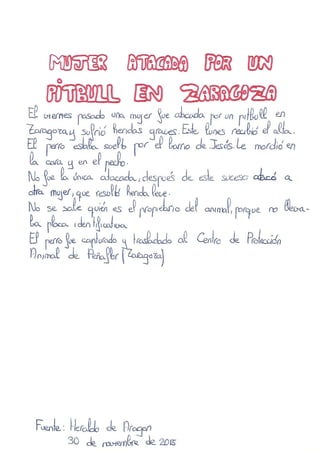 MUJER ATACADA POR UN
PITBULL EN ZARAGOZA
El viernes pasado una mujer fue atacada por un pitbull en
Zaragoza y sufrió heridas graves. Este lunes recibió el alta.
El perro estaba suelto por el barrio de Jesús. Le mordió en
la cara y en el pecho.
No fue la única atacada, después de este suceso atacó a
otra mujer, que resultó herida leve.
No se sabe quién es el propietario del animal, porque no lleva-
ba placa identificativa.
El perro fue capturado y trasladado al Centro de Protección
Animal de Peñaflor (Zaragoza)
Fuente: Heraldo de Aragon
30 de noviembre de 2015